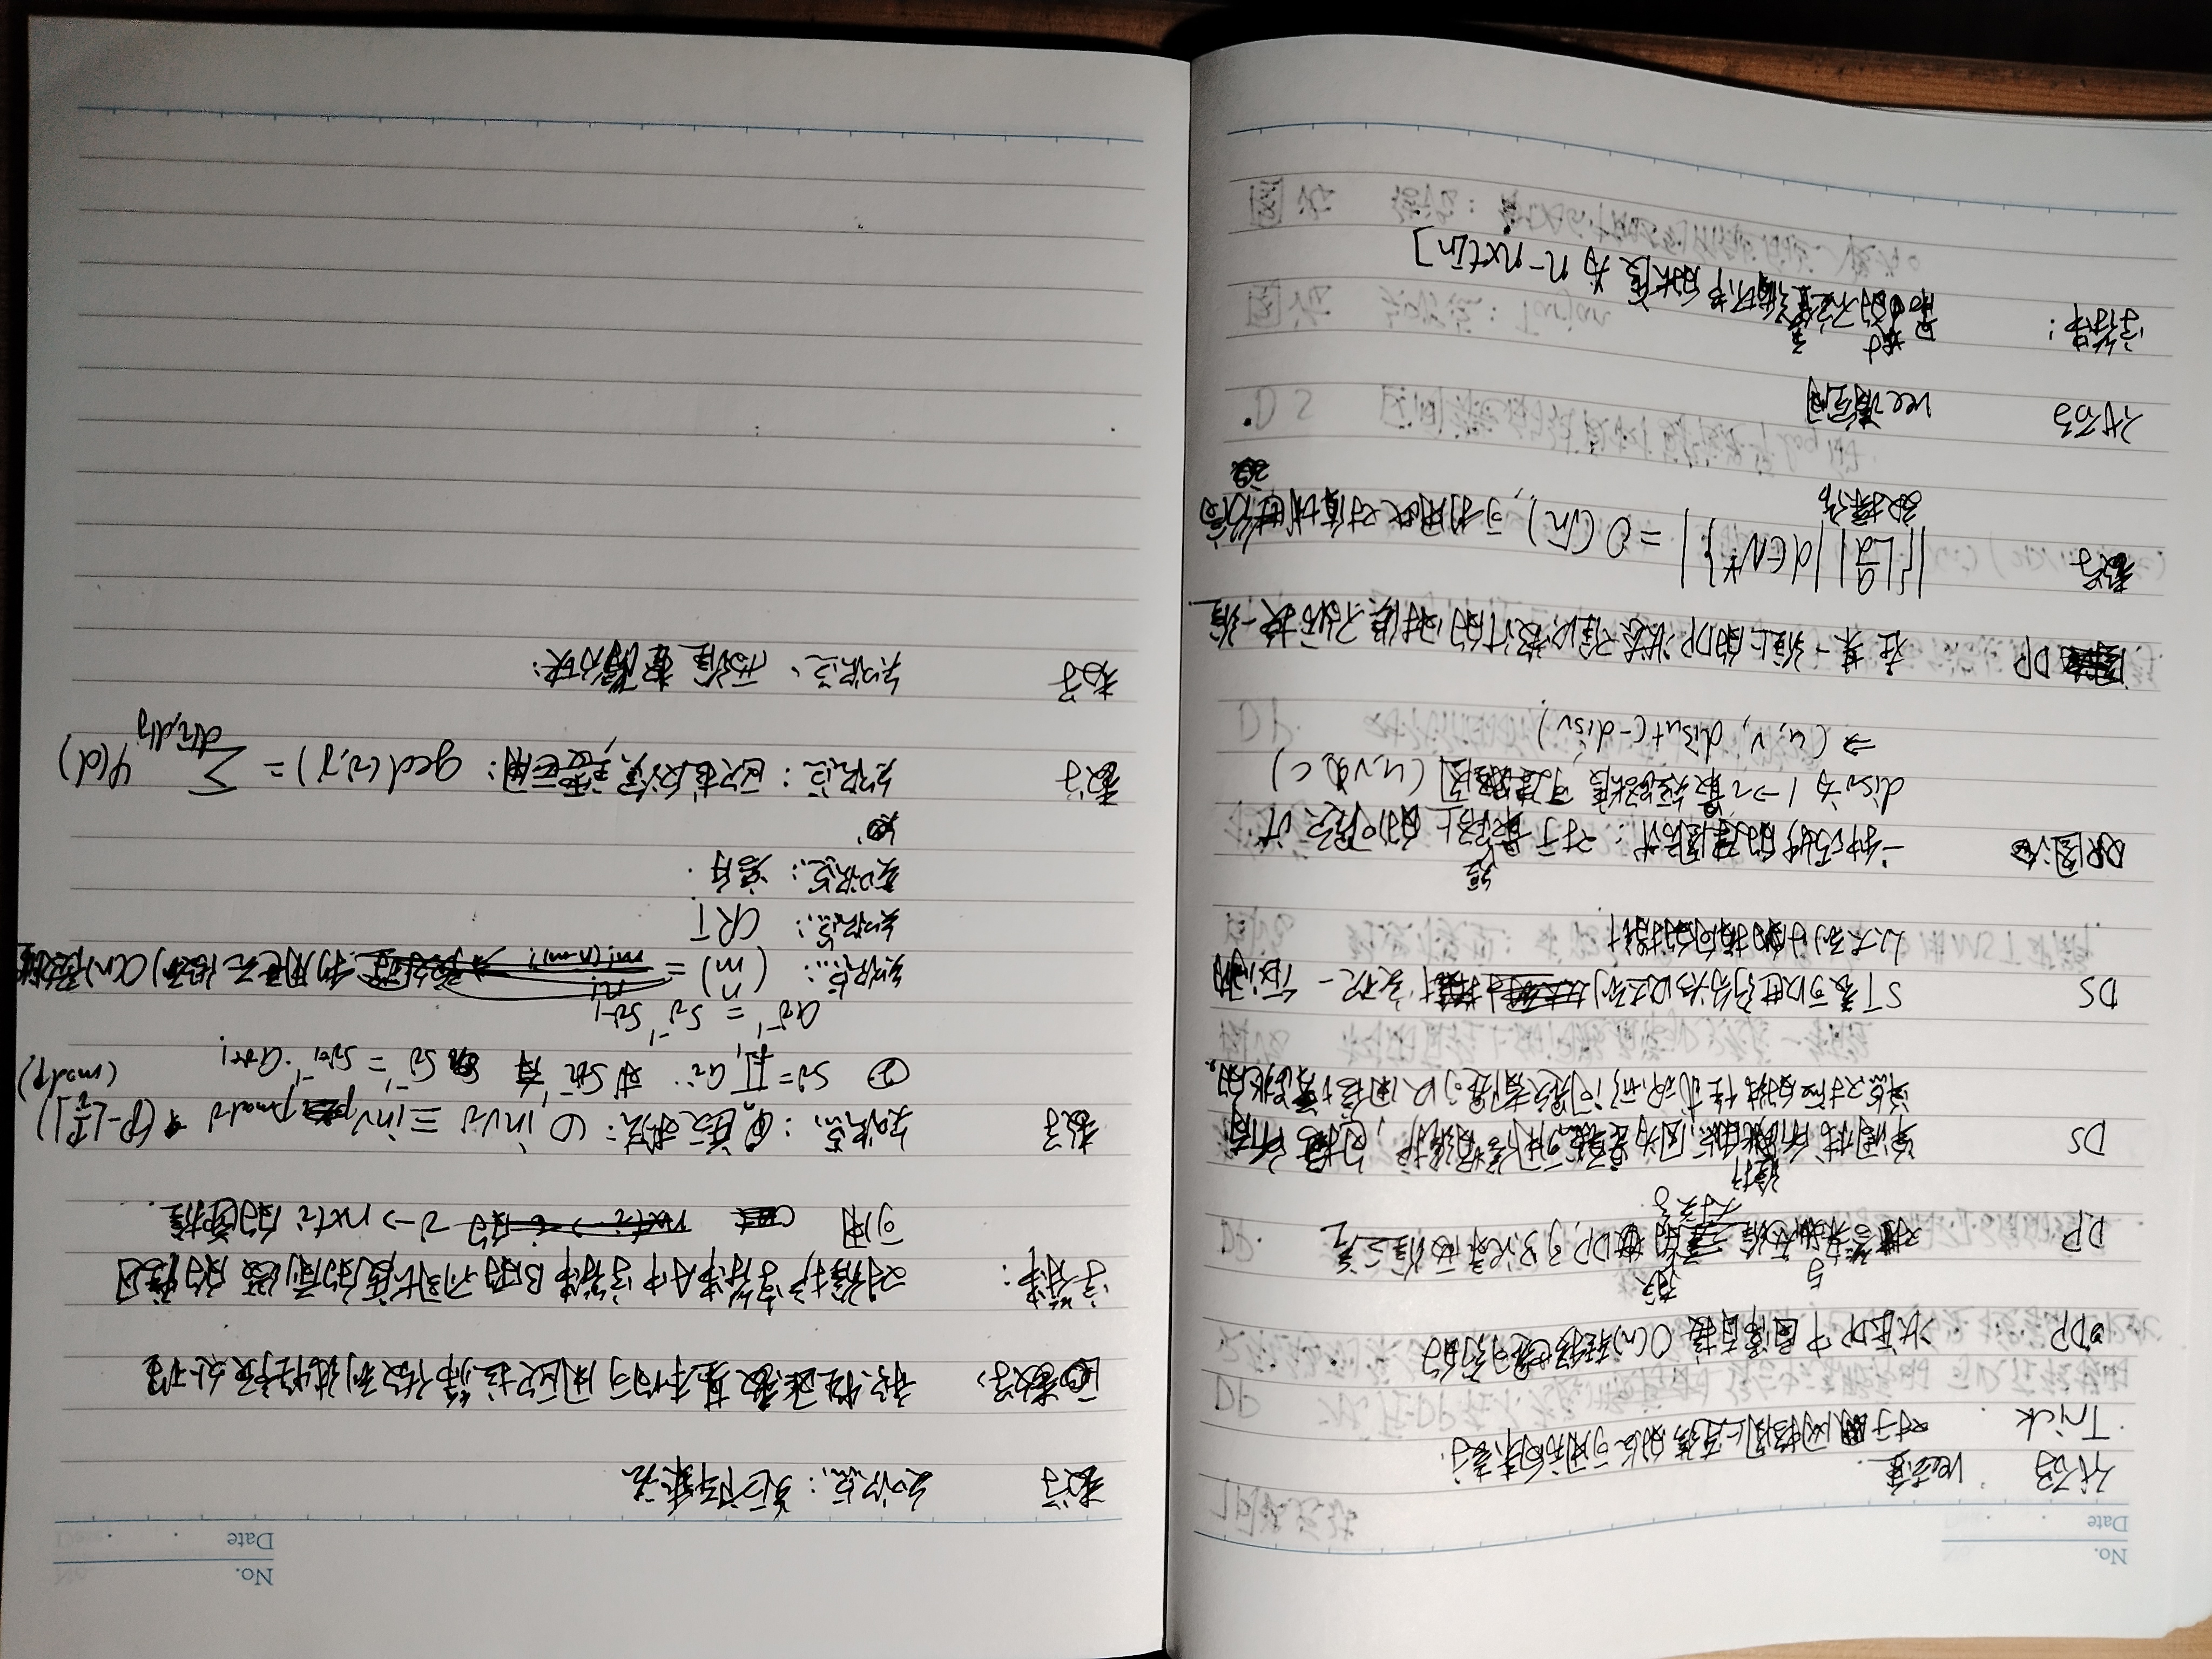 No.
Date
代码 vec去重.
Trick 对于网格图上连续的点可用方向来表示.
DP 状压DP中通常直接O(n)转移也是可行的
DP 答案与两维有关的DP,可只记录两维之差
大小关系
DS 单调栈所维护的点,因为是单点可用倍增维护,包括所有
单点对应的线性或环形问题都是可以用倍增跳的.
DS ST表可以进行分治以达到实现一个区间内
从大到小的指向的指针.
图论 一种巧妙的建图方式:对于最短路上的问题,计
disi为1→i最短路长度,可建图(u,v,c)
⇒(u,v,disu+c-disv)
DP 在某一维上的DP状态难以设计的时候,不妨换一维.
数学 |{⌊a/d⌋|d∈N*}|=O(√n),可利用此对值域进行高
效操作
代码 vec清空间
字符串: 最小的不完整循环节的长度为n-nxt[n]
No.
Date
数学 知识点:矩阵乘法
数学 积性函数基本均可用欧拉筛做到线性预处理
字符串: 对维护字符串A中字符串B的不同长度的前缀的信息
可用 的i→nxti的递推.
数学 知识点:逆元求法:①,invi≡invpmodi*(p-⌊p/i⌋)
(modp)
② Si=∏ai 求Sn⁻¹有Si⁻¹=Si+1⁻¹·ai+1
ai⁻¹=Si⁻¹Si-1
知识点:(n m)= 利用逆元做到O(n)预处理
知识点:CRT
知识点:容斥.
数学 知识点:欧拉反演,主要应用:gcd(i,j)=∑d|i,d|jφ(d)
数学 知识点:两维整除分块: